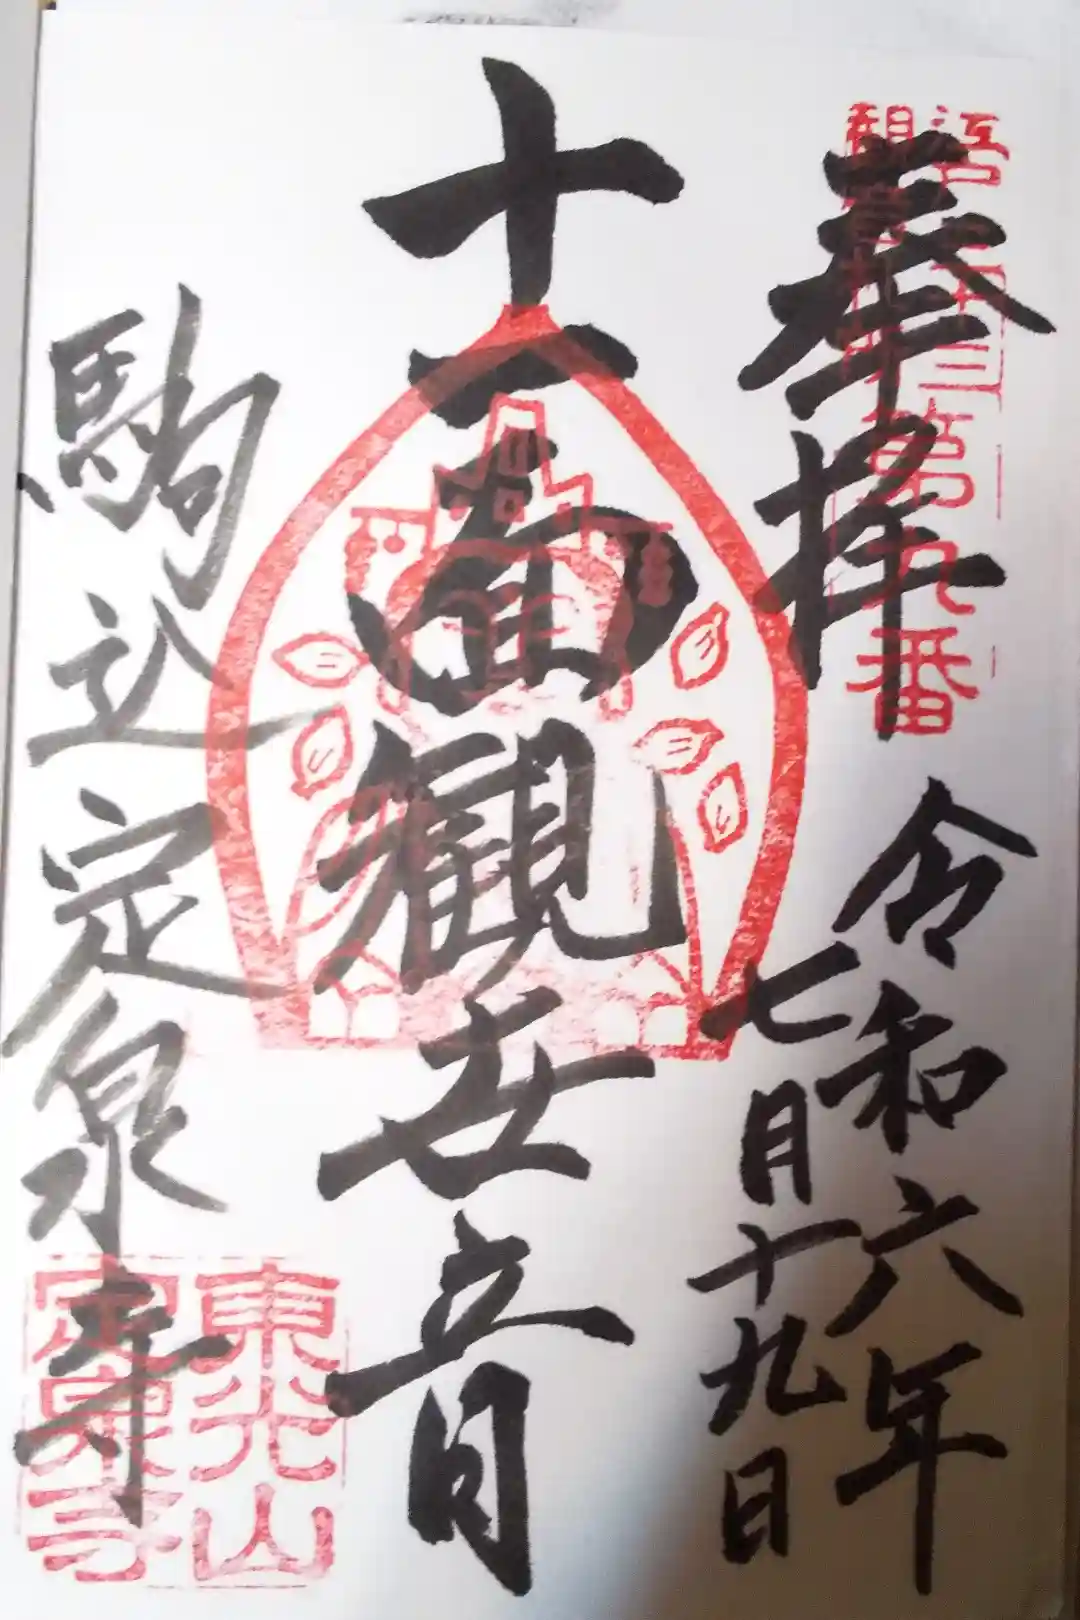 江戸三十三
観音札所
第九番
奉拝
令和六年
七月十九日
十一面観世音
駒込定泉寺
東光山
定泉寺